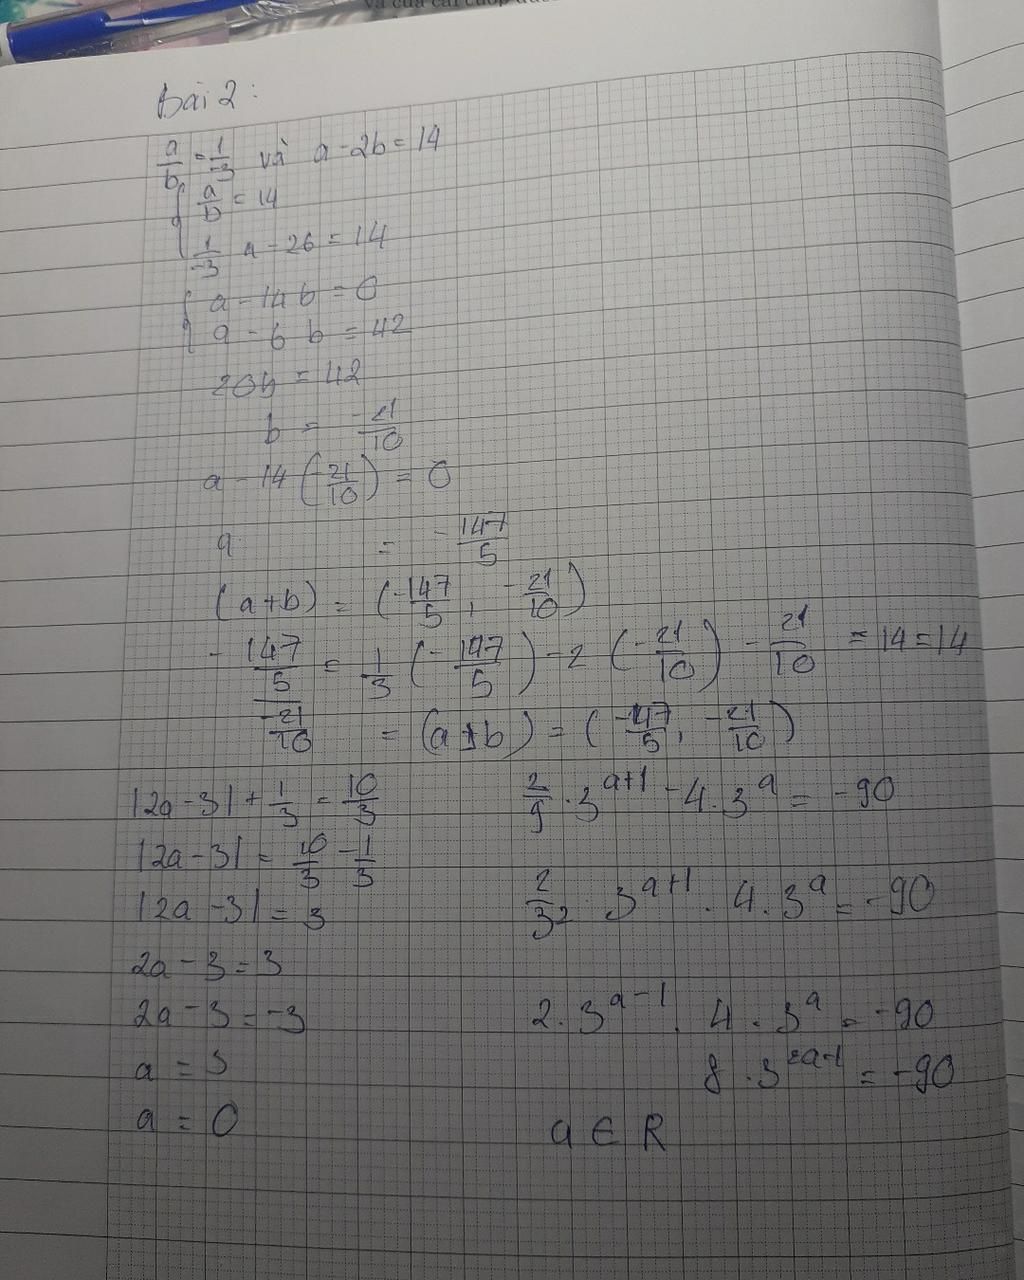 Bài 2:
a/b = 1/-3 và a - 2b = 14
{ a/b = 14
1/-3 a - 2b = 14
{ a - 14b = 0
a - 6b = 42
20b = 42
b = -21/10
a - 14(-21/10) = 0
a = -147/5
(a+b) = (-147/5, -21/10)
-147/5 / -21/10 = 1/3 (-147/5) - 2 (-21/10) - 21/10 = 14 = 14
= (a+b) = (-147/5, -21/10)
|2a - 3| + 1/3 = 10/3
|2a - 3| = 10/3 - 1/3
|2a - 3| = 3
2a - 3 = 3
2a - 3 = -3
a = 3
a = 0
2/9 . 3^(a+1) - 4 . 3^a = -90
2/3^2 . 3^(a+1) . 4 . 3^a = -90
2 . 3^(a-1) . 4 . 3^a = -90
8 . 3^(2a-1) = -90
a ∈ R